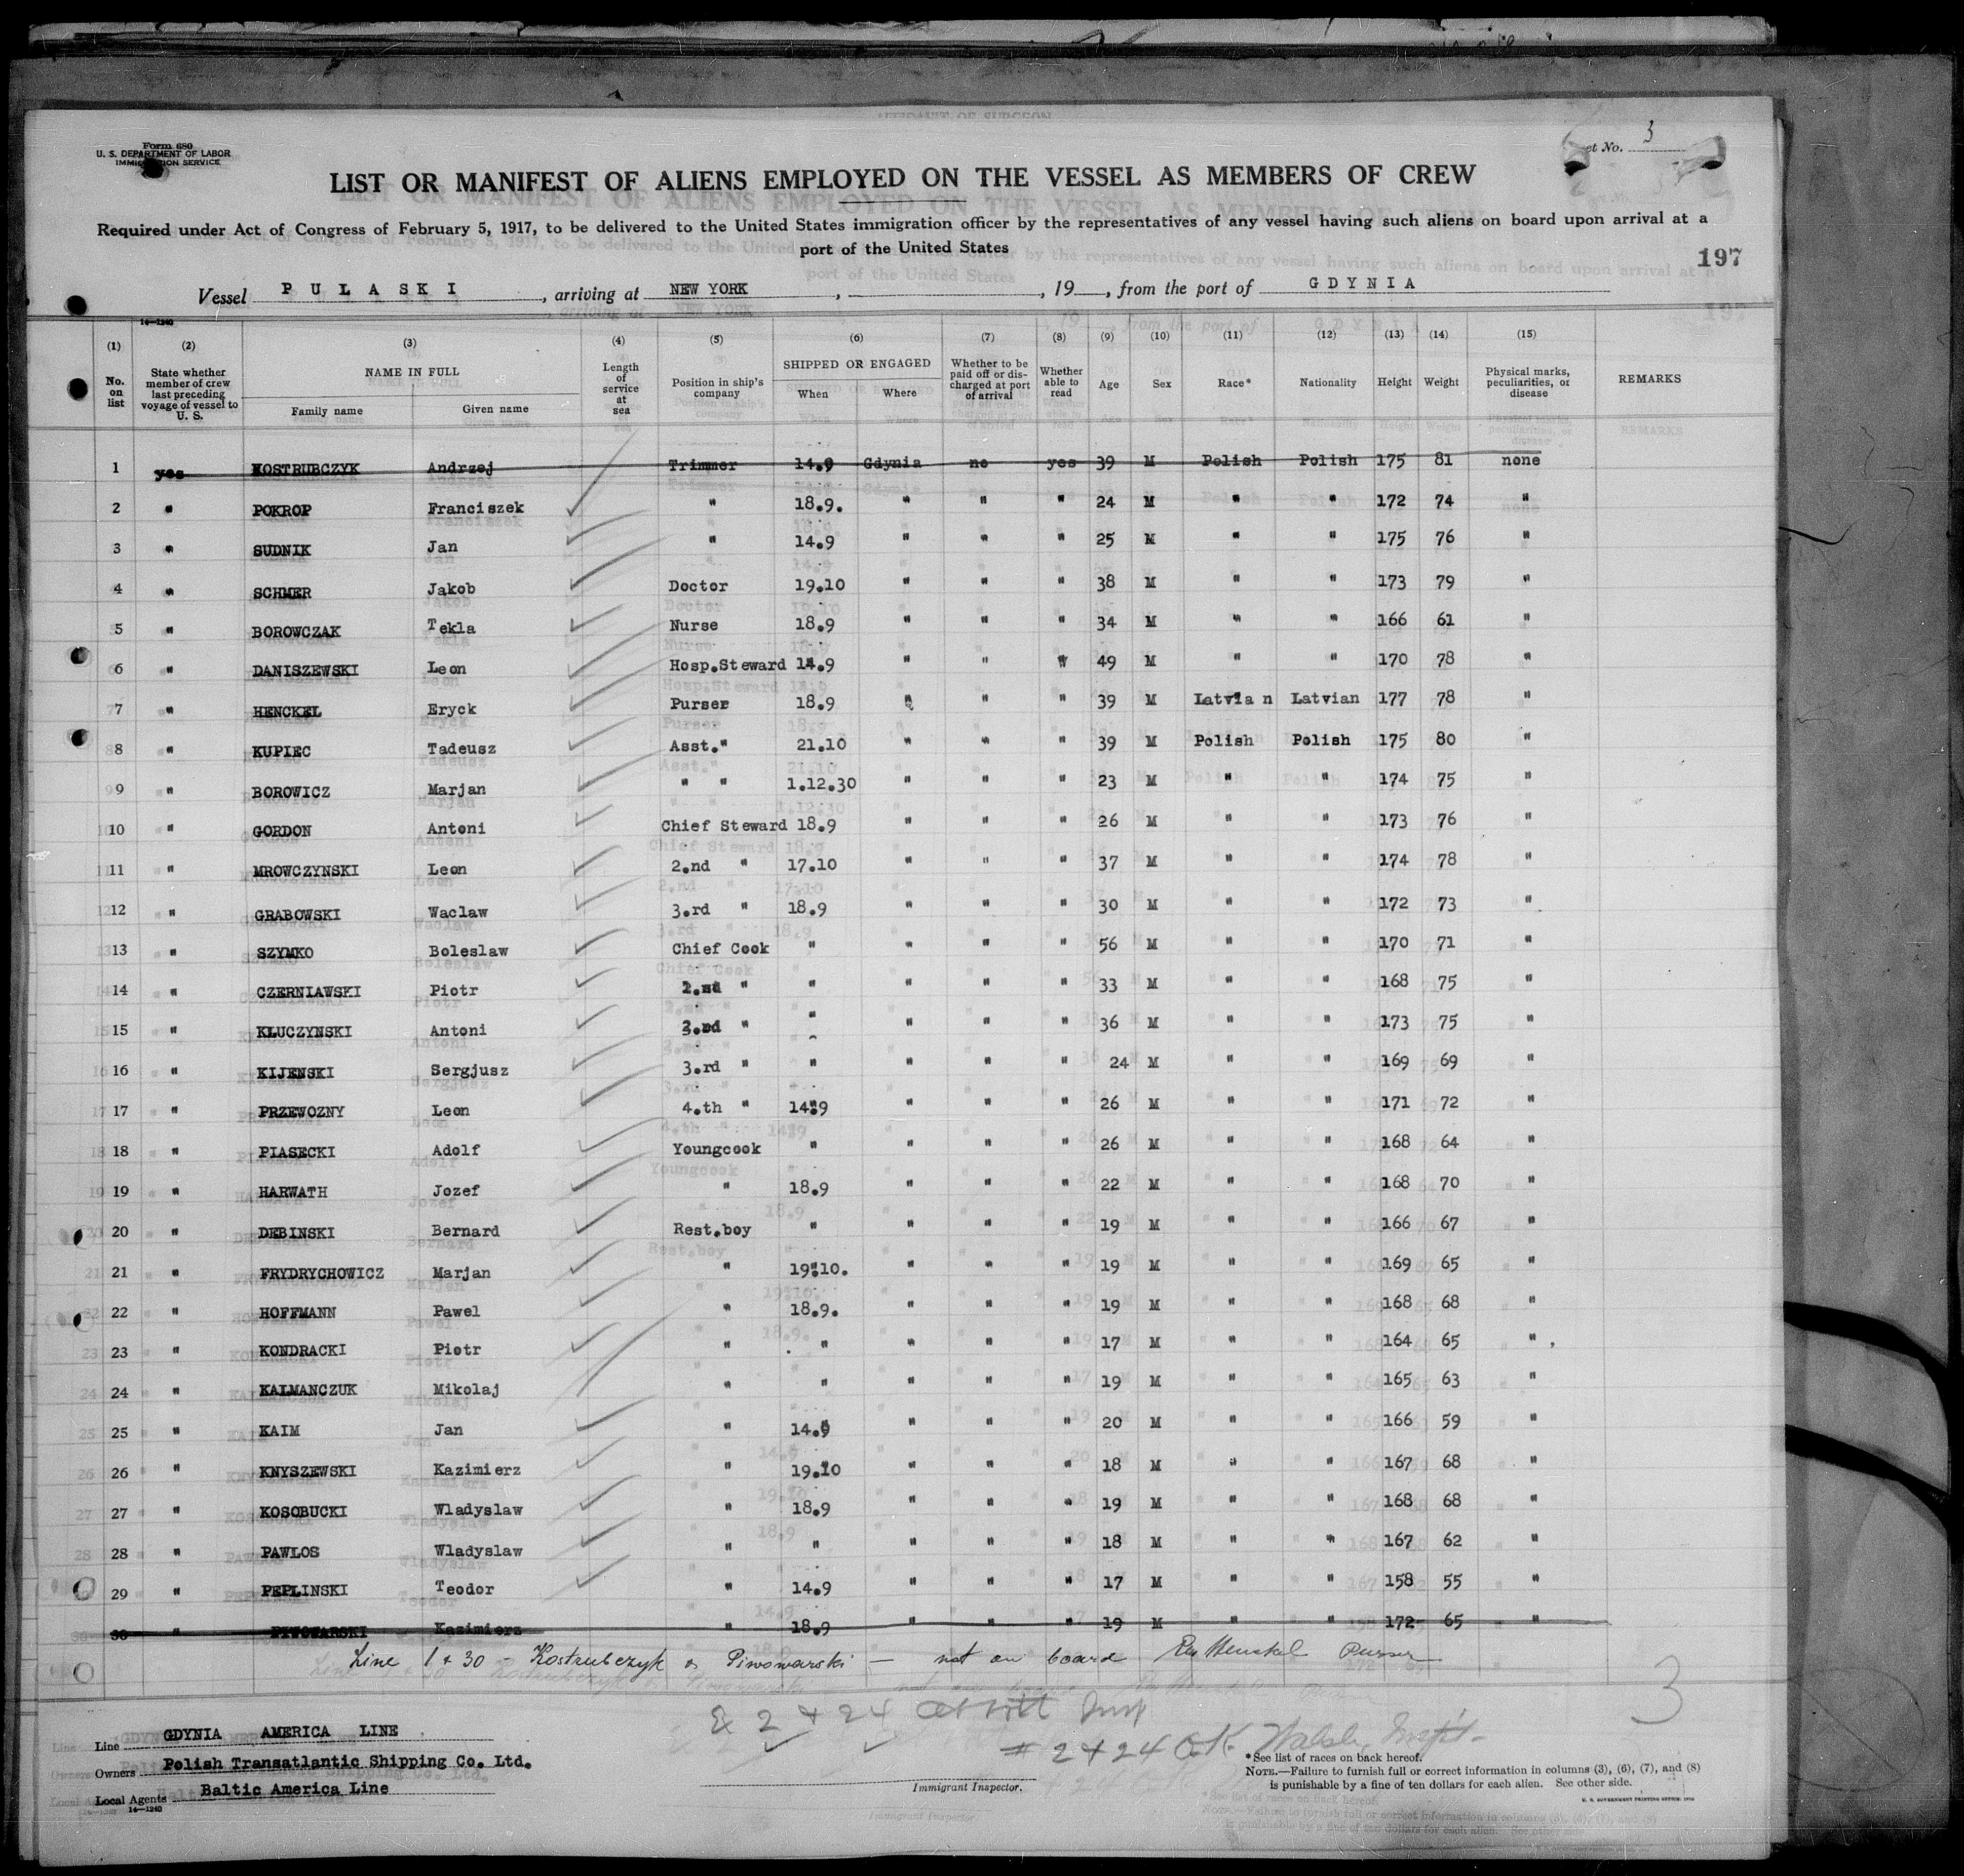 Form 680
U. S. DEPARTMENT OF LABOR
IMMIGRATION SERVICE
et No. 3
LIST OR MANIFEST OF ALIENS EMPLOYED ON THE VESSEL AS MEMBERS OF CREW
Required under Act of Congress of February 5, 1917, to be delivered to the United States immigration officer by the representatives of any vessel having such aliens on board upon arrival at a
port of the United States
197
Vessel PULASKI, arriving at NEW YORK, , 19 , from the port of GDYNIA
14—1240
(1) (2) (3) (4) (5) (6) (7) (8) (9) (10) (11) (12) (13) (14) (15)
No. on list | State whether member of crew last preceding voyage of vessel to U. S. | NAME IN FULL Family name Given name | Length of service at sea | Position in ship's company | SHIPPED OR ENGAGED When Where | Whether to be paid off or discharged at port of arrival | Whether able to read | Age | Sex | Race* | Nationality | Height | Weight | Physical marks, peculiarities, or disease | REMARKS
1 yes KOSTRUBCZYK Andrzej Trimmer 14.9 Gdynia no yes 39 M Polish Polish 175 81 none
2 " POKROP Franciszek " 18.9. " " " 24 M " " 172 74 "
3 " SUDNIK Jan " 14.9 " " " 25 M " " 175 76 "
4 " SCHMER Jakob Doctor 19.10 " " " 38 M " " 173 79 "
5 " BOROWCZAK Tekla Nurse 18.9 " " " 34 M " " 166 61 "
6 " DANISZEWSKI Leon Hosp.Steward 14.9 " " " 49 M " " 170 78 "
7 " HENCKEL Eryck Purser 18.9 " " " 39 M Latvian Latvian 177 78 "
8 " KUPIEC Tadeusz Asst." 21.10 " " " 39 M Polish Polish 175 80 "
9 " BOROWICZ Marjan " " 1.12.30 " " " 23 M " " 174 75 "
10 " GORDON Antoni Chief Steward 18.9 " " " 26 M " " 173 76 "
11 " MROWCZYNSKI Leon 2.nd " 17.10 " " " 37 M " " 174 78 "
12 " GRABOWSKI Waclaw 3.rd " 18.9 " " " 30 M " " 172 73 "
13 " SZYMKO Boleslaw Chief Cook " " " " 56 M " " 170 71 "
14 " CZERNIAWSKI Piotr 2.nd " " " " " 33 M " " 168 75 "
15 " KLUCZYNSKI Antoni " " " " " 36 M " " 173 75 "
16 " KIJENSKI Sergjusz 3.rd " " " " " 24 M " " 169 69 "
17 " PRZEWOZNY Leon 4.th " 14.9 " " " 26 M " " 171 72 "
18 " PIASECKI Adolf Youngcook " " " " 26 M " " 168 64 "
19 " HARWATH Jozef " 18.9 " " " 22 M " " 168 70 "
20 " DEBINSKI Bernard Rest.boy " " " " 19 M " " 166 67 "
21 " FRYDRYCHOWICZ Marjan " 19.10. " " " 19 M " " 169 65 "
22 " HOFFMANN Pawel " 18.9. " " " 19 M " " 168 68 "
23 " KONDRACKI Piotr " " " " " 17 M " " 164 65 "
24 " KALMANCZUK Mikolaj " " " " " 19 M " " 165 63 "
25 " KAIM Jan " 14.9 " " " 20 M " " 166 59 "
26 " KNYSZEWSKI Kazimierz " 19.10 " " " 18 M " " 167 68 "
27 " KOSOBUCKI Wladyslaw " 18.9 " " " 19 M " " 168 68 "
28 " PAWLOS Wladyslaw " " " " " 18 M " " 167 62 "
29 " PEPLINSKI Teodor " 14.9 " " " 17 M " " 158 55 "
30 " PIWOWARSKI Kazimierz " 18.9 " " " 19 M " " 172 65 "
Line 1 + 30 - Kostrubczyk & Piwowarski — not on board Henckel Purser
& 2 + 24
# 2 + 24 O.K. Walsh, Insp't.
3
Line GDYNIA AMERICA LINE
Owners Polish Transatlantic Shipping Co. Ltd.
Local Agents Baltic America Line
14—1240
Immigrant Inspector.
*See list of races on back hereof.
NOTE.—Failure to furnish full or correct information in columns (3), (6), (7), and (8)
is punishable by a fine of ten dollars for each alien. See other side.